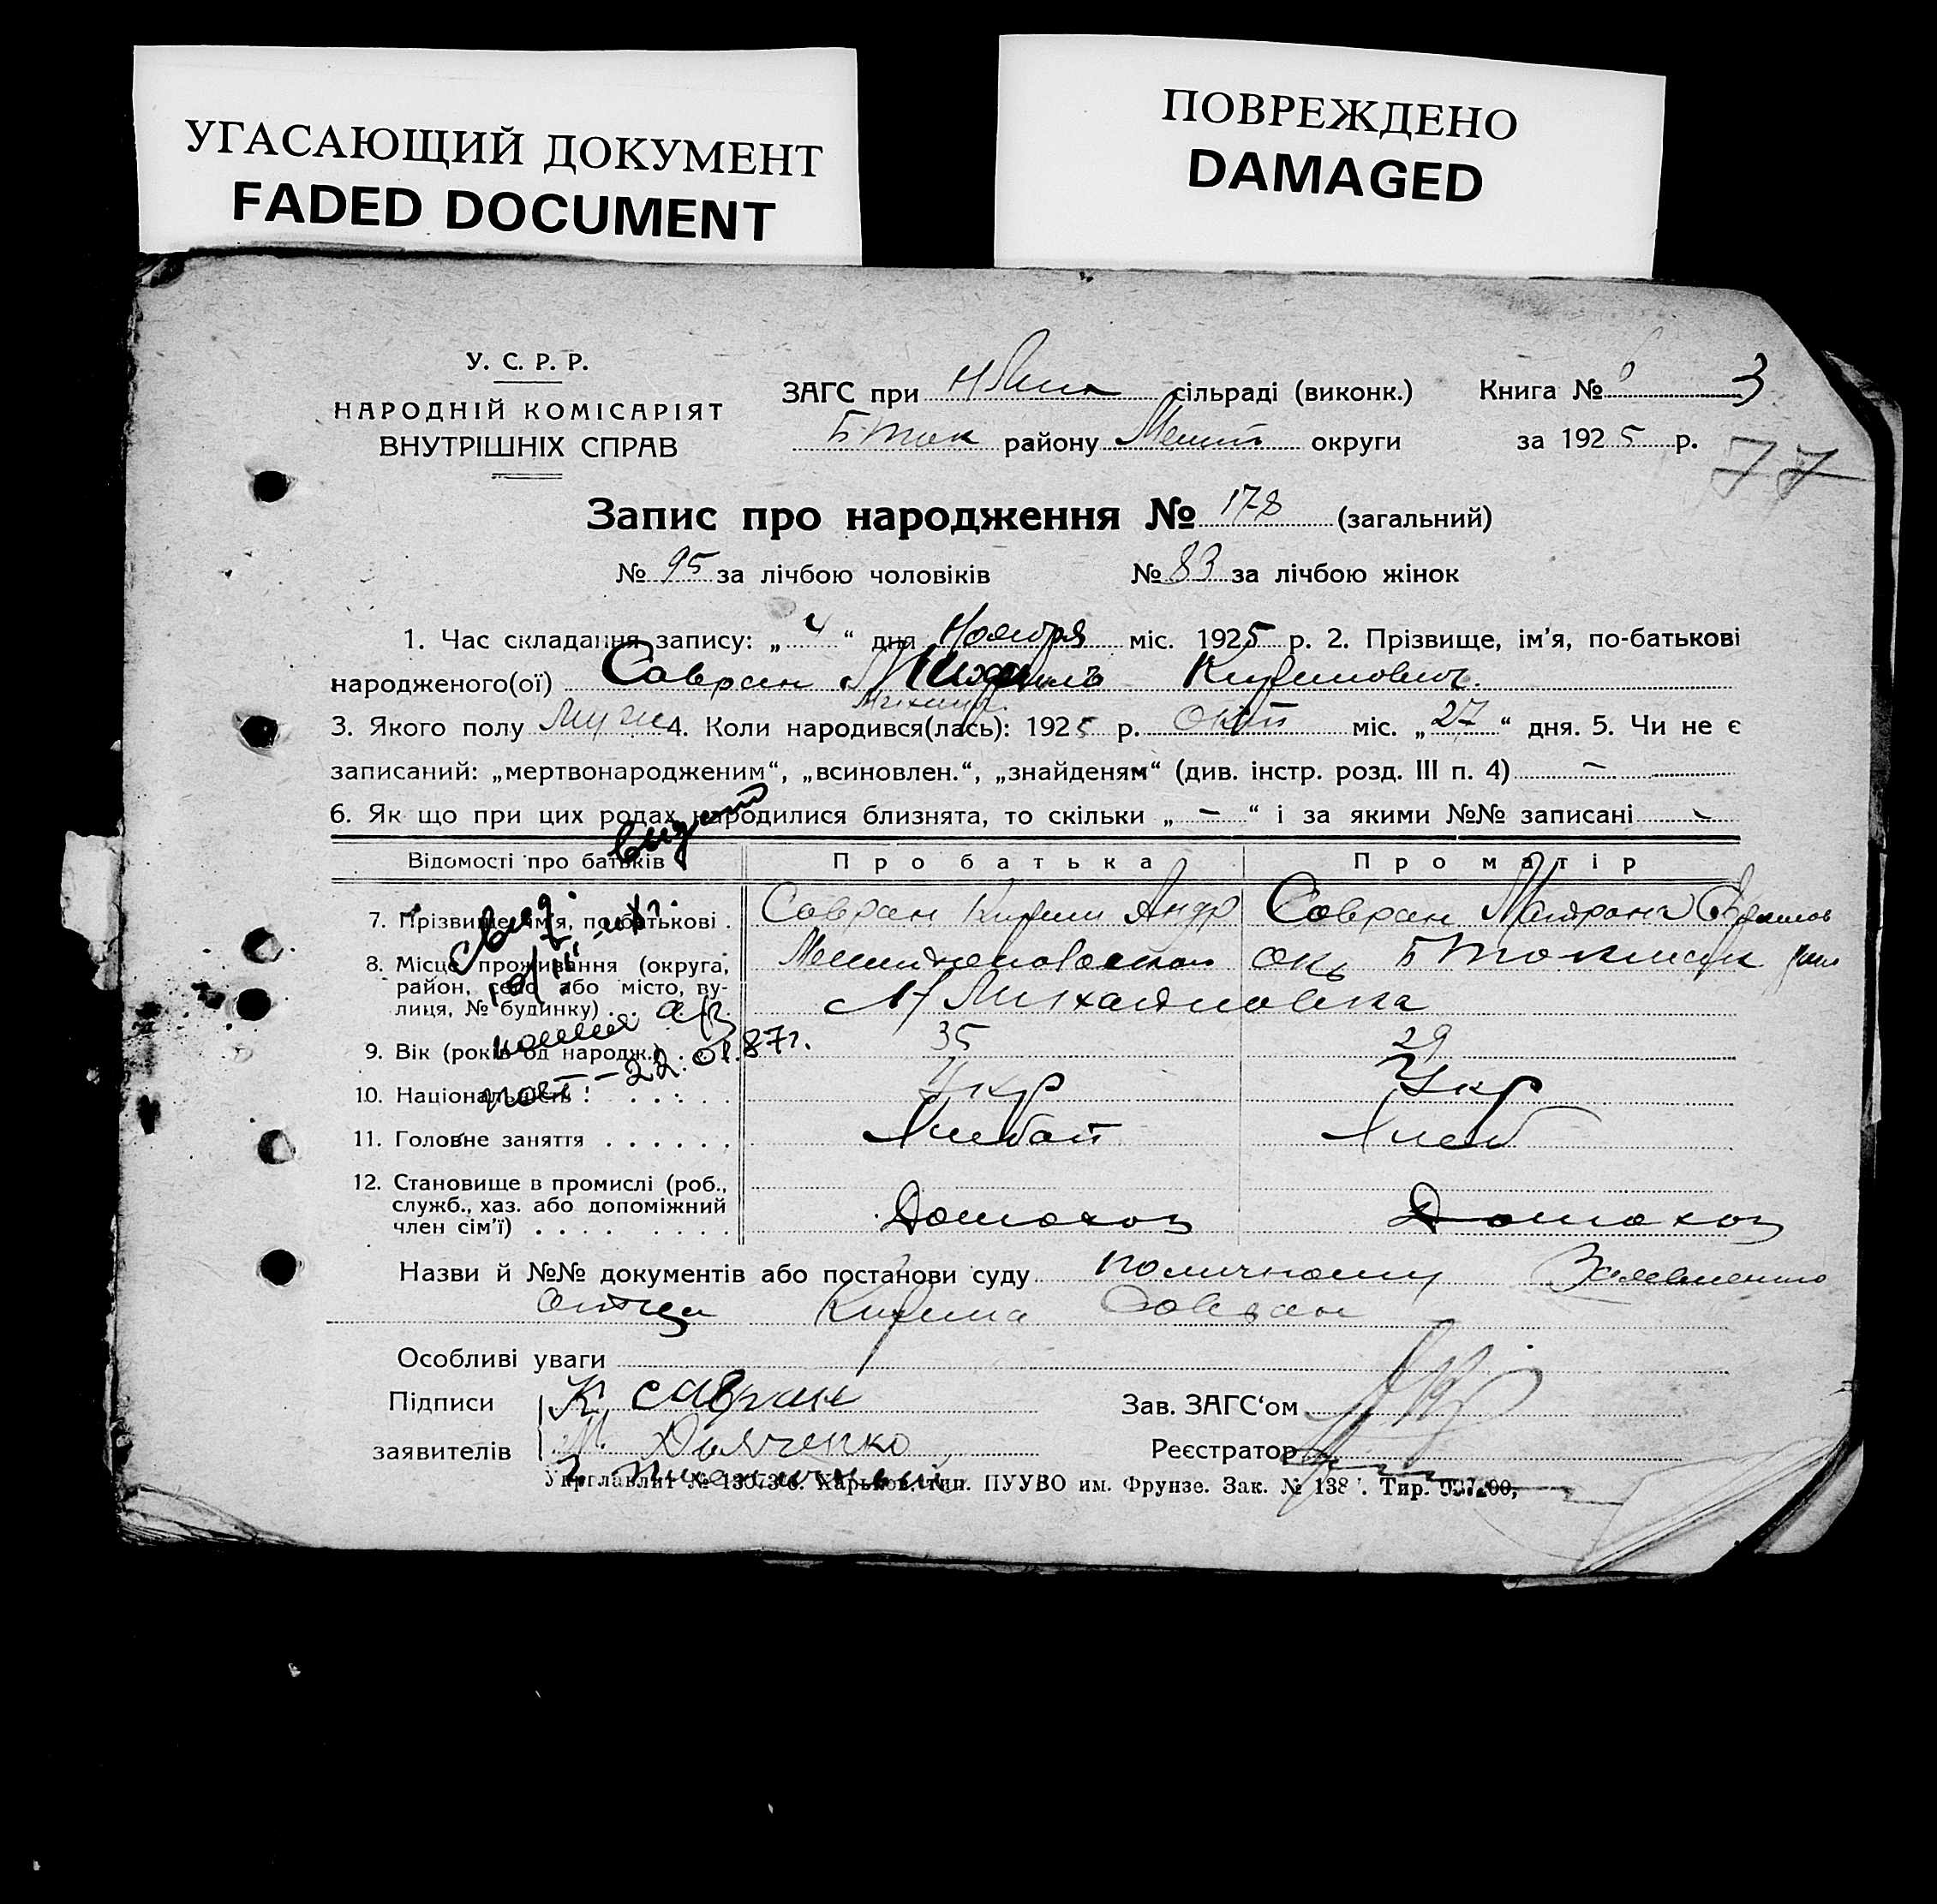 УГАСАЮЩИЙ ДОКУМЕНТ
FADED DOCUMENT
ПОВРЕЖДЕНО
DAMAGED
У. С. Р. Р.
НАРОДНІЙ КОМІСАРІЯТ
ВНУТРІШНІХ СПРАВ
ЗАГС при сільраді (виконк.) Книга № 3
Б Ток району Мелит округи за 1925 р.
77
Запис про народження № 178 (загальний)
№ 95 за лічбою чоловіків № 83 за лічбою жінок
1. Час складання запису: „ 4 “ дня Ноября міс. 1925 р. 2. Прізвище, ім’я, по-батькові
народженого(ої) Савран Михаилъ Кирилович.
3. Якого полу Муж 4. Коли народився(лась): 1925 р. Окт міс. „ 27 “ дня. 5. Чи не є
записаний: „мертвонародженим“, „всиновлен.“, „знайденям“ (див. інстр. розд. III п. 4) –
6. Як що при цих родах народилися близнята, то скільки „ – “ і за якими №№ записані
Відомості про батьків Про батька Про матір
7. Прізвище, ім’я, по-батькові . Савран Кирил Андр Савран Матрона
8. Місце проживання (округа, район, село або місто, вулиця, № будинку) . . Мелитопольской окр Б Токмак
Н Михайловка
9. Вік (років од народж.) . . 35 29
копия
22.01.87г.
10. Національність . . . . . . Укр Укр
11. Головне заняття . . . . . . Хлебоп Хлеб
12. Становище в промислі (роб., служб., хаз. або допоміжний член сім’ї) . . . . . . . . Домохоз Домохоз
Назви й №№ документів або постанови суду по личному Заявлению
отца Кирила Савран
Особливі уваги
Підписи К Савран Зав. ЗАГС‘ом
заявителів М. Дьяченко Реєстратор
Укрглавлит № 13073-б. Харьков, тип. ПУУВО им. Фрунзе. Зак. № 138 . Тир.